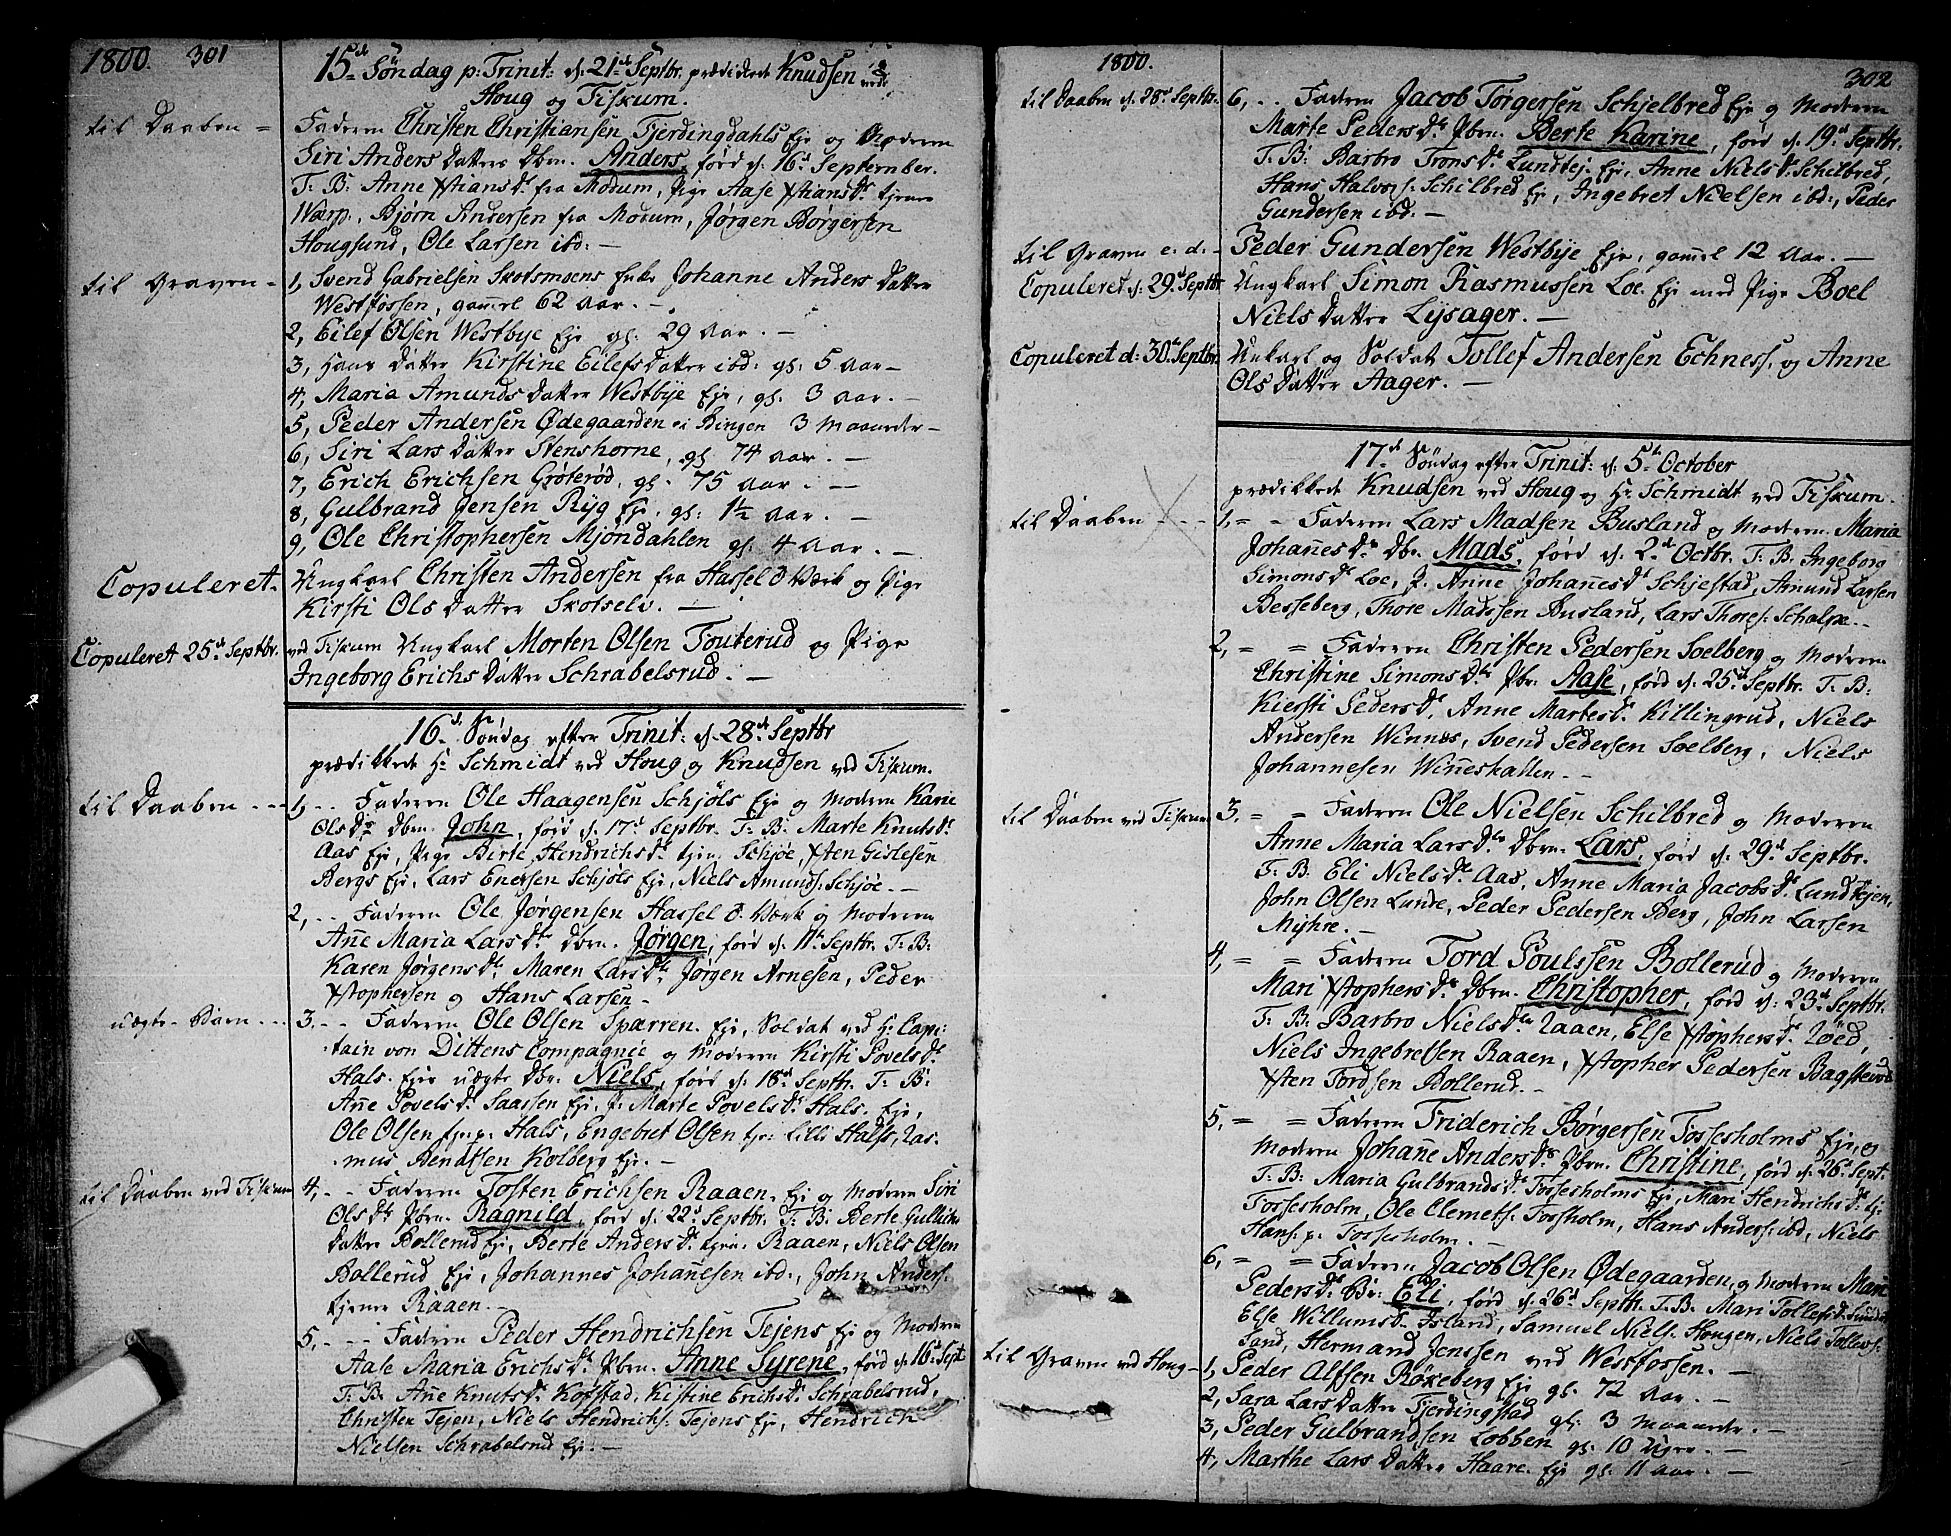 1800. 301
15de Söndag p: Trinit: d. 21de Septbr. prædickede Knudsen ved
Houg og Fiskum.
til Daaben = Faderen Christen Christiansen Fjerdingdahls Eje og Moderen
Siri Anders Datters Dbrn. Anders, föed d. 16d September.
F. B: Anne Xstians Dr fra Modum, Pige Aase Xstians Dr tjener
Wærp, Bjørn Andersen fra Modum, Jørgen Børgersen
Hougsund, Ole Larsen ibd: —
til Graven = 1, Svend Gabrielsen Skotsmoens Enke Johanne Anders Datter
Westfossen, gamel 62 aar. —
2, Eilef Olsen Westbye Eje gl: 29 Aar. —
3, Hans Datter Kirstine Eilefs Datter ibd: gl: 5 aar —
4, Maria Amunds Datter Westbye Eje, gl: 3 aar. —
5, Peder Andersen Ødegaarden i Bingen 3 Maaneder —
6, Siri Lars Datter Stenshorne, gl 74 aar. —
7, Erich Erichsen Grøterød, gl. 75 aar. —
8, Gulbrand Jensen Ryg Eje, gl: 1½ aar. —
9, Ole Christophersen Mjöndahlen gl: 4 aar. —
Copuleret. Ungkarl Christen Andersen fra Hassel J: Værk og Pige
Kirsti Ols Datter Skotselv. —
Copuleret 25de Septbr. ved Fiskum Ungkarl Morten Olsen Touterud og Pige
Ingeborg Erichs Datter Schrabelsrud. —
16de Söndag efter Trinit: d. 28de Septbr
prædickede Hr Schmidt ved Houg og Knudsen ved Fiskum.
til Daaben --- 1, -- Faderen Ole Haagensen Schjöls Eje og Moderen Karie
Ols Dr Dbrn. John, föed d. 17d Septbr. F. B. Marte Knuts Dr
Aas Eje, Pige Birte Hendrichs Dr tjen. Schjøe, Xsten Gislesen
Bergs Eje, Lars Enersen Schjöls Eje, Niels Amunds: Schjöe. —
2, -- Faderen Ole Jørgensen Hassel J: Værk og Moderen
Añe Maria Lars Dr Dbrn. Jørgen, föed d. 11te Septbr. F. B:
Karen Jørgens Dr, Maren Lars Dr, Jørgen Arnesen, Peder
Xstophersen og Hans Larsen —
uægte Barn --- 3. -- Faderen Ole Olsen Sparren. Eje, Soldat ved Hr Cap:
tain von Dittens Compagnie og Moderen Kirsti Povels Dr
Hals. Ejes uægte Dbr. Niels, föed d: 18d Septbr. F. B:
Añe Povels Dr Saassen Eje, P. Marte Povels Dr Hals. Eje,
Ole Olsen tjen p. Hals, Engebret Olsen tje: Lilli Hals, Ras:
mus Bendtsen Kolberg Eje. —
til Daaben ved Fiskum 4, -- Faderen Tosten Erichsen Raaen, Eje og Moderen Siri
Ols Dr Pbrn. Ragnild, föed d: 22d Septbr. F. B: Berte Gullichs
Datter Bollerud Eje, Berte Anders Dr tjene. Raaen, Niels Olsen
Bollerud Eje, Johannes Johañesen ibd:, John Anders.
tjener Raaen. —
5, -- Faderen Peder Hendrichsen Tejens Eje og Moderen
Aase Maria Erichs Dr Pbrn. Anne Syrene, föed d. 16d Sept
F. B. Añe Knuts Dr Kopstad, Kistine Erichs Dr Schrabelsrud,
Christen Tejen, Niels Hendrichs: Tejens Eje, Hendrich
Nielsen Schrabelsrud Eje. —
1800. 302
til Daaben d. 28d Septbr. 6, -- Faderen Jacob Törgersen Schjelbred Eje og Moderen
Marte Peders Dr Pbrn. Berte Karine, föed d. 19d Septbr.
F. B: Barbro Trons Dr Lundtej. Eje, Anne Niels Dr Schilbred,
Hans Halvors: Schilbred Ej, Ingebret Nielsen ibd:, Peder
Gundersen ibd: —
til Graven e. d. - Peder Gundersen Westbye Eje, gamel 12 Aar. —
Copuleret d: 29d Septbr Ungkarl Simon Rasmussen Loe. Eje med Pige Boel
Niels Datter Lysager. —
Copuleret d: 30te Septbr. Unkarl og Soldat Tollef Andersen Echness, og Anne
Ols Datter Aager. —
17de Söndag efter Trinit: d: 5te October
prædickede Knudsen ved Houg og Hr Schmidt ved Fiskum.
til Daaben --- 1, = - Faderen Lars Madsen Busland og Moderen Maria
Johañes Dr Dbr. Mads, föed d. 2d Octbr. F. B. Ingeborg
Simons Dr Loe, P. Anne Johañes Dr Schjestad, Amund Larsen
Besseberg, Thore Madssen Busland, Lars Thores: Schalpe. —
2, = = Faderen Christen Pedersen Soelberg og Moderen
Christine Simons Dr Pbr. Aase, föed d. 25d Septbr. F. B:
Kiersti Peders Dr, Anne Martes Dr. Killingrud, Niels
Andersen Winnes, Svend Pedersen Soelberg, Niels
Johannesen Wiñeskallen. —
til Daaben ved Fiskum 3. = = Faderen Ole Nielsen Schilbred og Moderen
Anne Maria Lars Dr Dbrn. Lars, föed d. 29d Septbr.
F. B. Eli Niels Dr Aas, Anne Maria Jacobs Dr Lundtejen,
John Olsen Lunde, Peder Pedersen Berg, John Larsen
Myhre. —
4, = = Faderen Tord Poulssen Bollerud og Moderen
Mari Xstophers Dr Dbrn. Christopher, föed d: 23d Septbr.
F. B: Barbro Niels Dr Raaen, Else Xstophers Dr Röed,
Niels Ingebretsen Raaen, Xstopher Pedersen Bagstevold
Xsten Tordsen Bollerud. —
5, = = Faderen Friderich Börgersen Fossesholms Eje, og
Moderen Johañe Anders Dr Pbrn. Christine, föed d. 26d Sept.
F. B: Maria Gulbrands Dr Fossesholms Eje, Mari Hendrichs Dr tj:
Fossesholm, Ole Clemets: Fossholm, Hans Anders: ibd, Niels
Hans: p. Fossesholm. —
6, = = Faderen Jacob Olsen Ødegaarden, og Moderen Mari
Peders Dr Br: Eli, föed d. 26d Septbr. F. B. Mari Tollefs Dr Sunde
Else Willums Dr Island, Samuel Niels: Hougen, Niels Tollevs:
Sand, Hermand Jenssen ved Westfossen. —
til Graven ved Houg — 1, Peder Alfsen Røkeberg Eje gl: 72 Aar. —
2, Sara Lars Datter Fjerdingstad gl: 3 Maaneder. —
3, Peder Gulbrandsen Lobben gl: 10 Uger. —
4, Marthe Lars Datter Haare. Eje gl: 11 aar. —